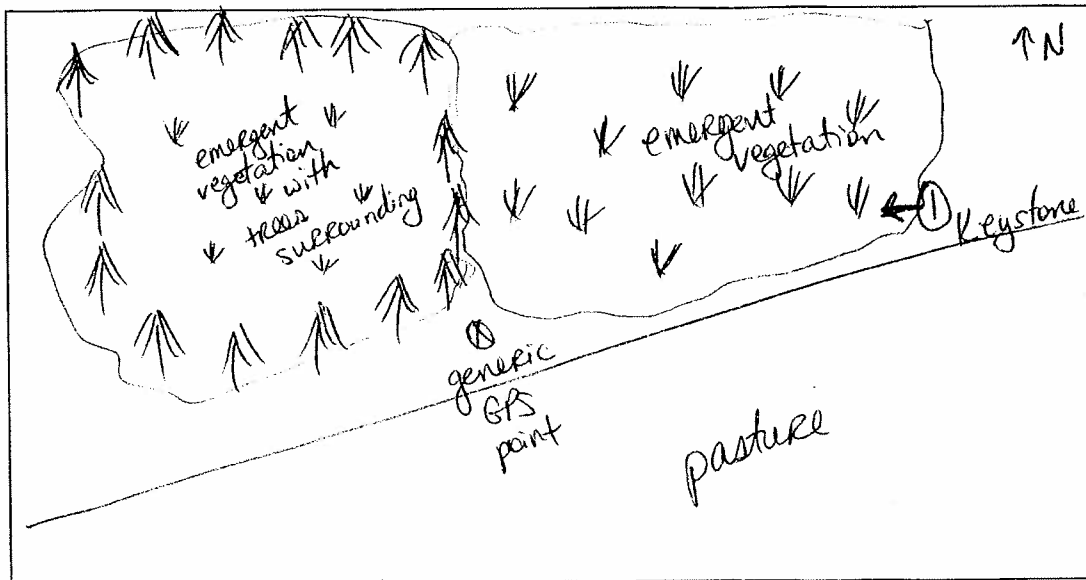 ↑N
emergent
vegetation
with
trees
surrounding
emergent
vegetation
1
Keystone
generic
GPS
point
pasture